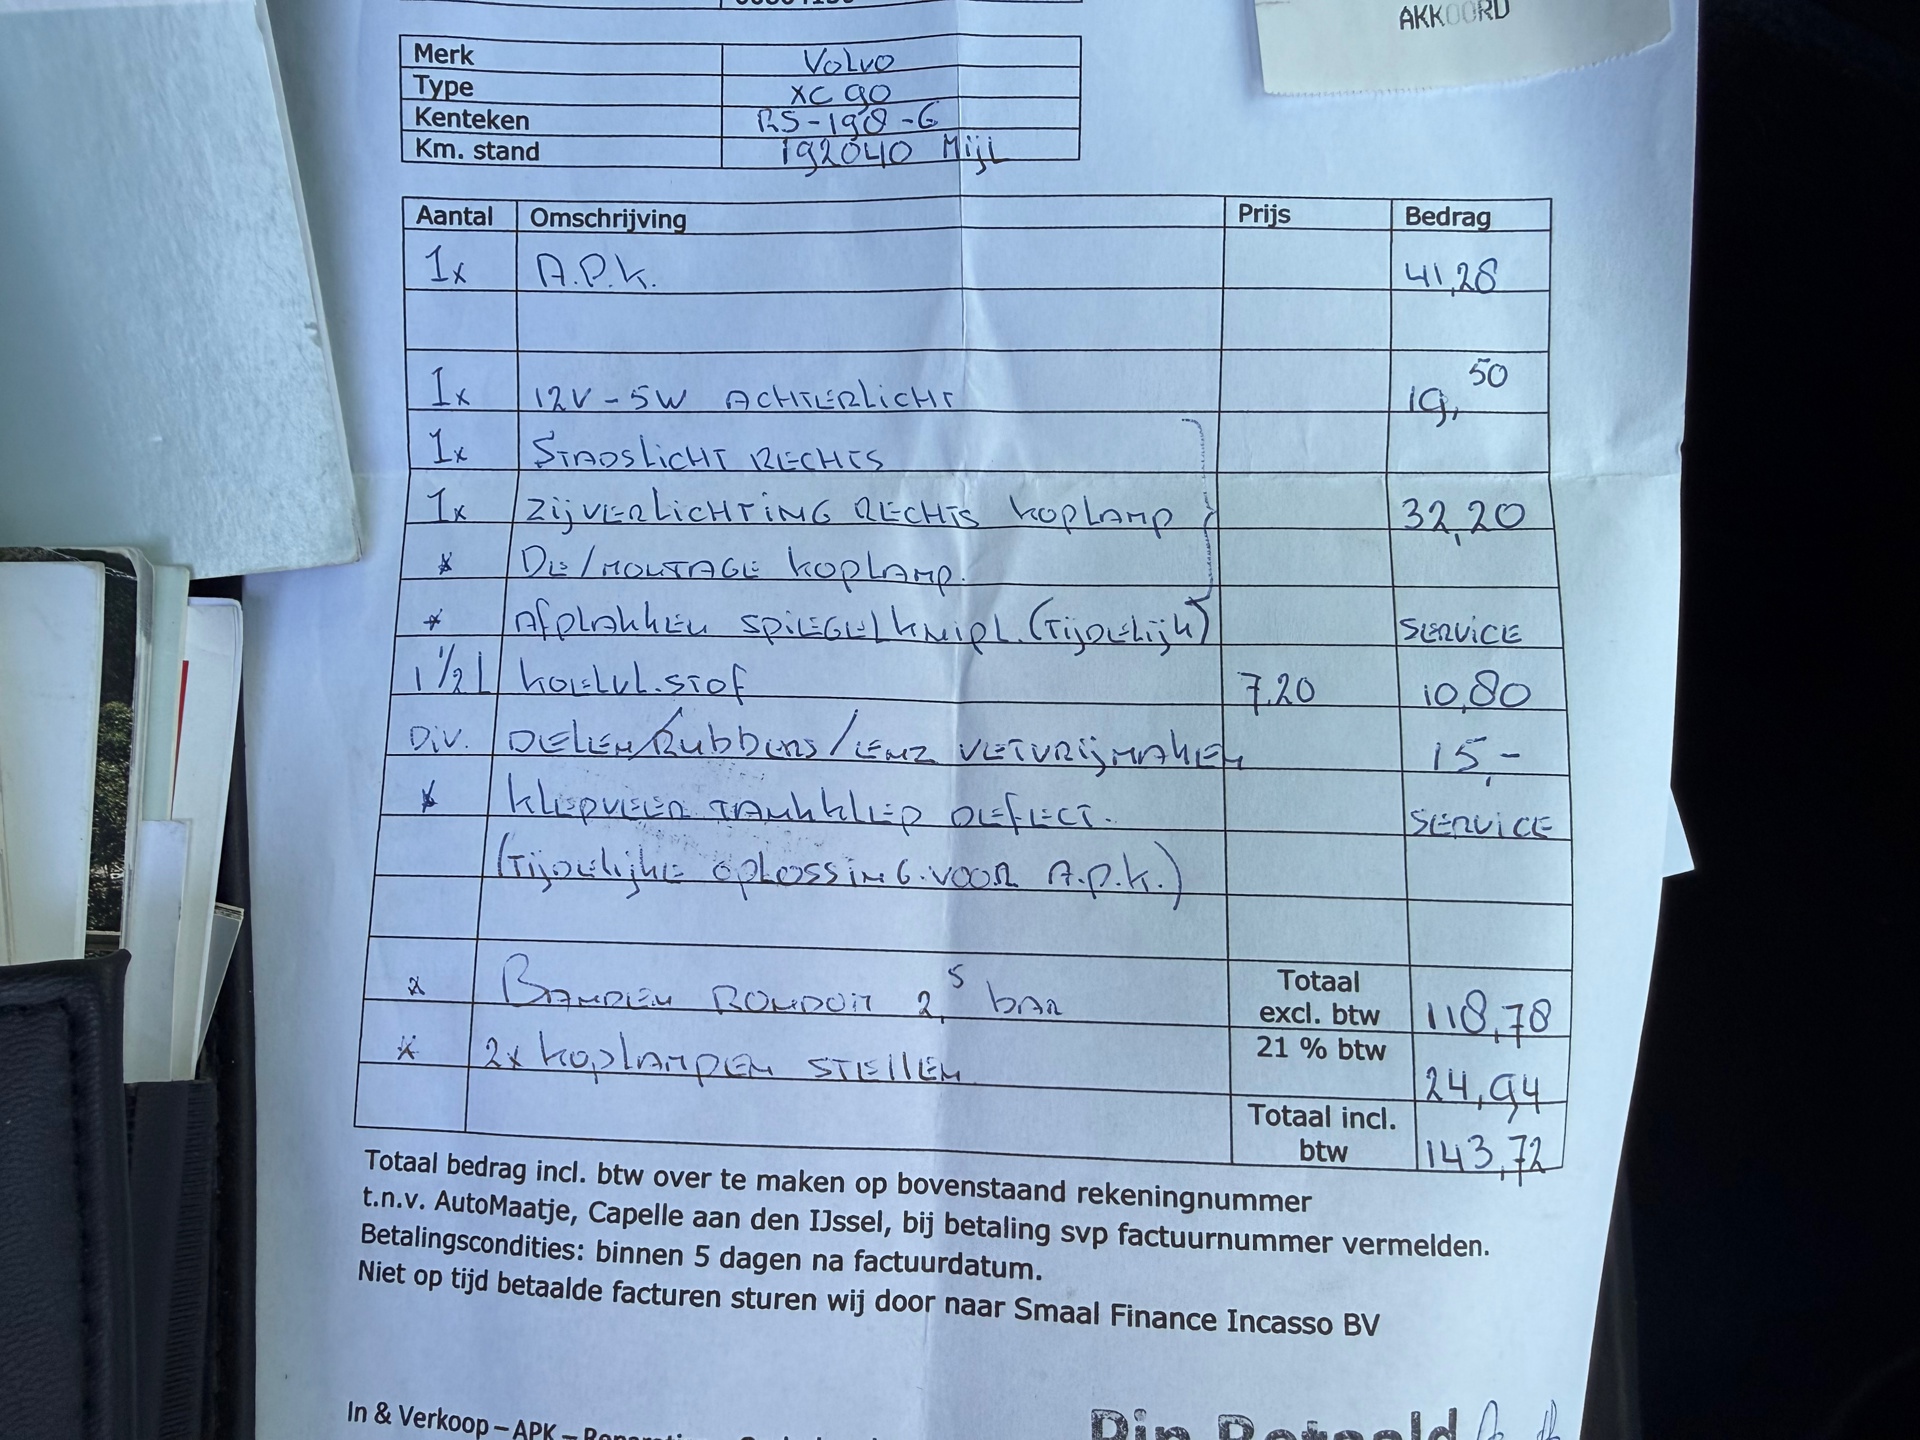 AKKOORD
Merk Volvo
Type XC 90
Kenteken RS-198-G
Km. stand 192040 Mijl
Aantal Omschrijving Prijs Bedrag
1x A.P.K. 41,28
1x 12V-5W ACHTERLICHT 19,50
1x STADSLICHT RECHTS
1x ZIJVERLICHTING RECHTS KOPLAMP 32,20
* DE/MONTAGE KOPLAMP.
* AFPLAKKEN SPIEGELKNIPL. (TIJDELIJK) SERVICE
1 1/2 L KOELVL.STOF 7.20 10,80
DIV. DELEN/Rubbers/LENZ VETVRIJMAKEN 15,-
* KLEPVEER TANKKLEP DEFECT. SERVICE
(TIJDELIJKE OPLOSSING.VOOR A.P.K.)
* BANDEN RONDOM 2,5 bar Totaal excl. btw 118,78
* 2x KOPLAMPEN STELLEN 21 % btw 24,94
Totaal incl. btw 143,72
Totaal bedrag incl. btw over te maken op bovenstaand rekeningnummer
t.n.v. AutoMaatje, Capelle aan den IJssel, bij betaling svp factuurnummer vermelden.
Betalingscondities: binnen 5 dagen na factuurdatum.
Niet op tijd betaalde facturen sturen wij door naar Smaal Finance Incasso BV
In & Verkoop – APK –
Pin Betaald